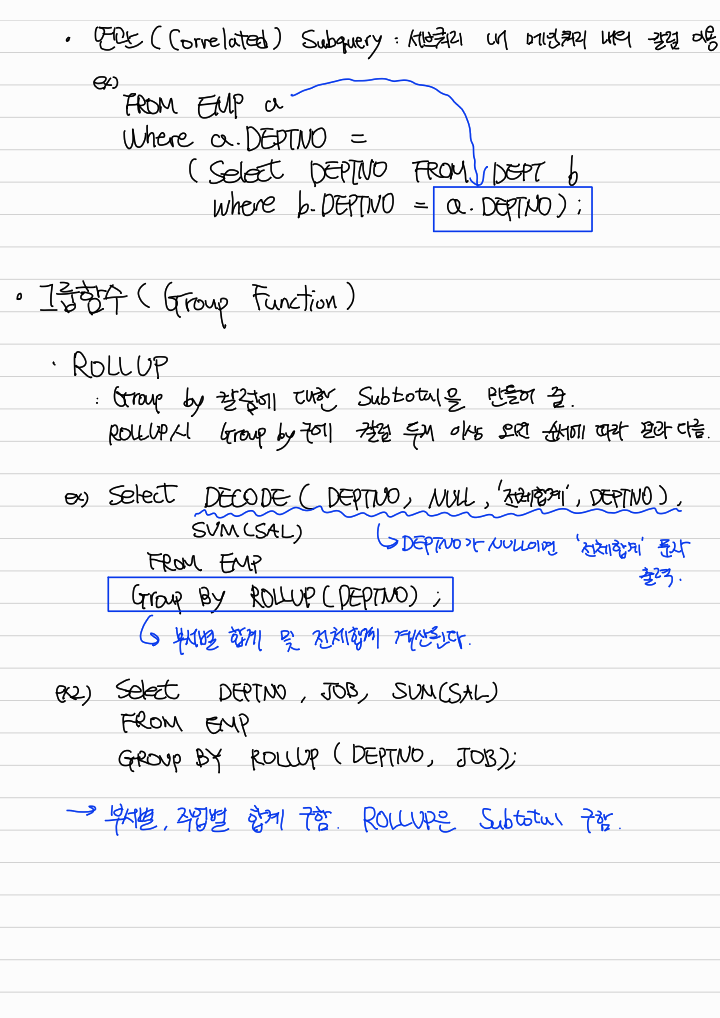 • 연관 (Correlated) Subquery : 서브쿼리 내 메인쿼리 내의 칼럼 이용
ex)
FROM EMP a
Where a.DEPTNO =
( Select DEPTNO FROM DEPT b
where b.DEPTNO = a.DEPTNO);
• 그룹함수 ( Group Function )
· ROLLUP
: Group by 칼럼에 대한 Subtotal을 만들어 줌.
ROLLUP시 Group by 구에 칼럼 두개 이상 오면 순서에 따라 결과 다름.
ex) Select DECODE ( DEPTNO, NULL, '전체합계', DEPTNO),
SUM(SAL)
↳ DEPTNO가 NULL이면 '전체합계' 문자
출력.
FROM EMP
Group BY ROLLUP(DEPTNO) ;
↳ 부서별 합계 및 전체합계 계산된다.
ex2) Select DEPTNO, JOB, SUM(SAL)
FROM EMP
GROUP BY ROLLUP ( DEPTNO, JOB);
→ 부서별, 직업별 합계 구함. ROLLUP은 Subtotal 구함.